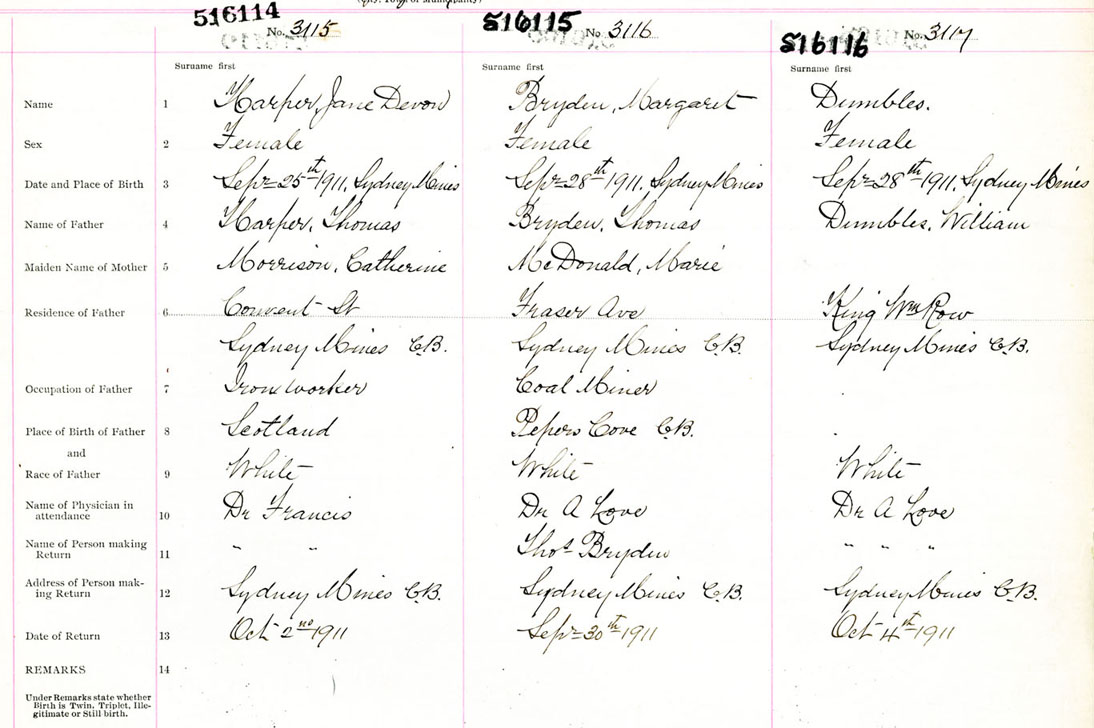 516114 516115 516116
No. 3115 No. 3116 No. 3117
Surname first Surname first Surname first
Name 1 Harper, Jane Devon Bryden, Margaret Dumbles.
Sex 2 Female Female Female
Date and Place of Birth 3 Sept 25th 1911, Sydney Mines Sept 28th 1911, Sydney Mines Sept 28th 1911, Sydney Mines
Name of Father 4 Harper, Thomas Bryden, Thomas Dumbles, William
Maiden Name of Mother 5 Morrison, Catherine McDonald, Marie
Residence of Father 6 Convent St Fraser Ave King Wm Row
Sydney Mines C.B. Sydney Mines C.B. Sydney Mines C.B.
Occupation of Father 7 Iron worker Coal Miner
Place of Birth of Father 8 Scotland Pepers Cove C.B.
and
Race of Father 9 White White White
Name of Physician in
attendance 10 Dr Francis Dr A Love Dr A Love
Name of Person making
Return 11 " " Thos Bryden " " "
Address of Person mak-
ing Return 12 Sydney Mines C.B. Sydney Mines C.B. Sydney Mines C.B.
Date of Return 13 Oct 2nd 1911 Sept 30th 1911 Oct 4th 1911
REMARKS 14
Under Remarks state whether
Birth is Twin, Triplet, Ille-
gitimate or Still birth.